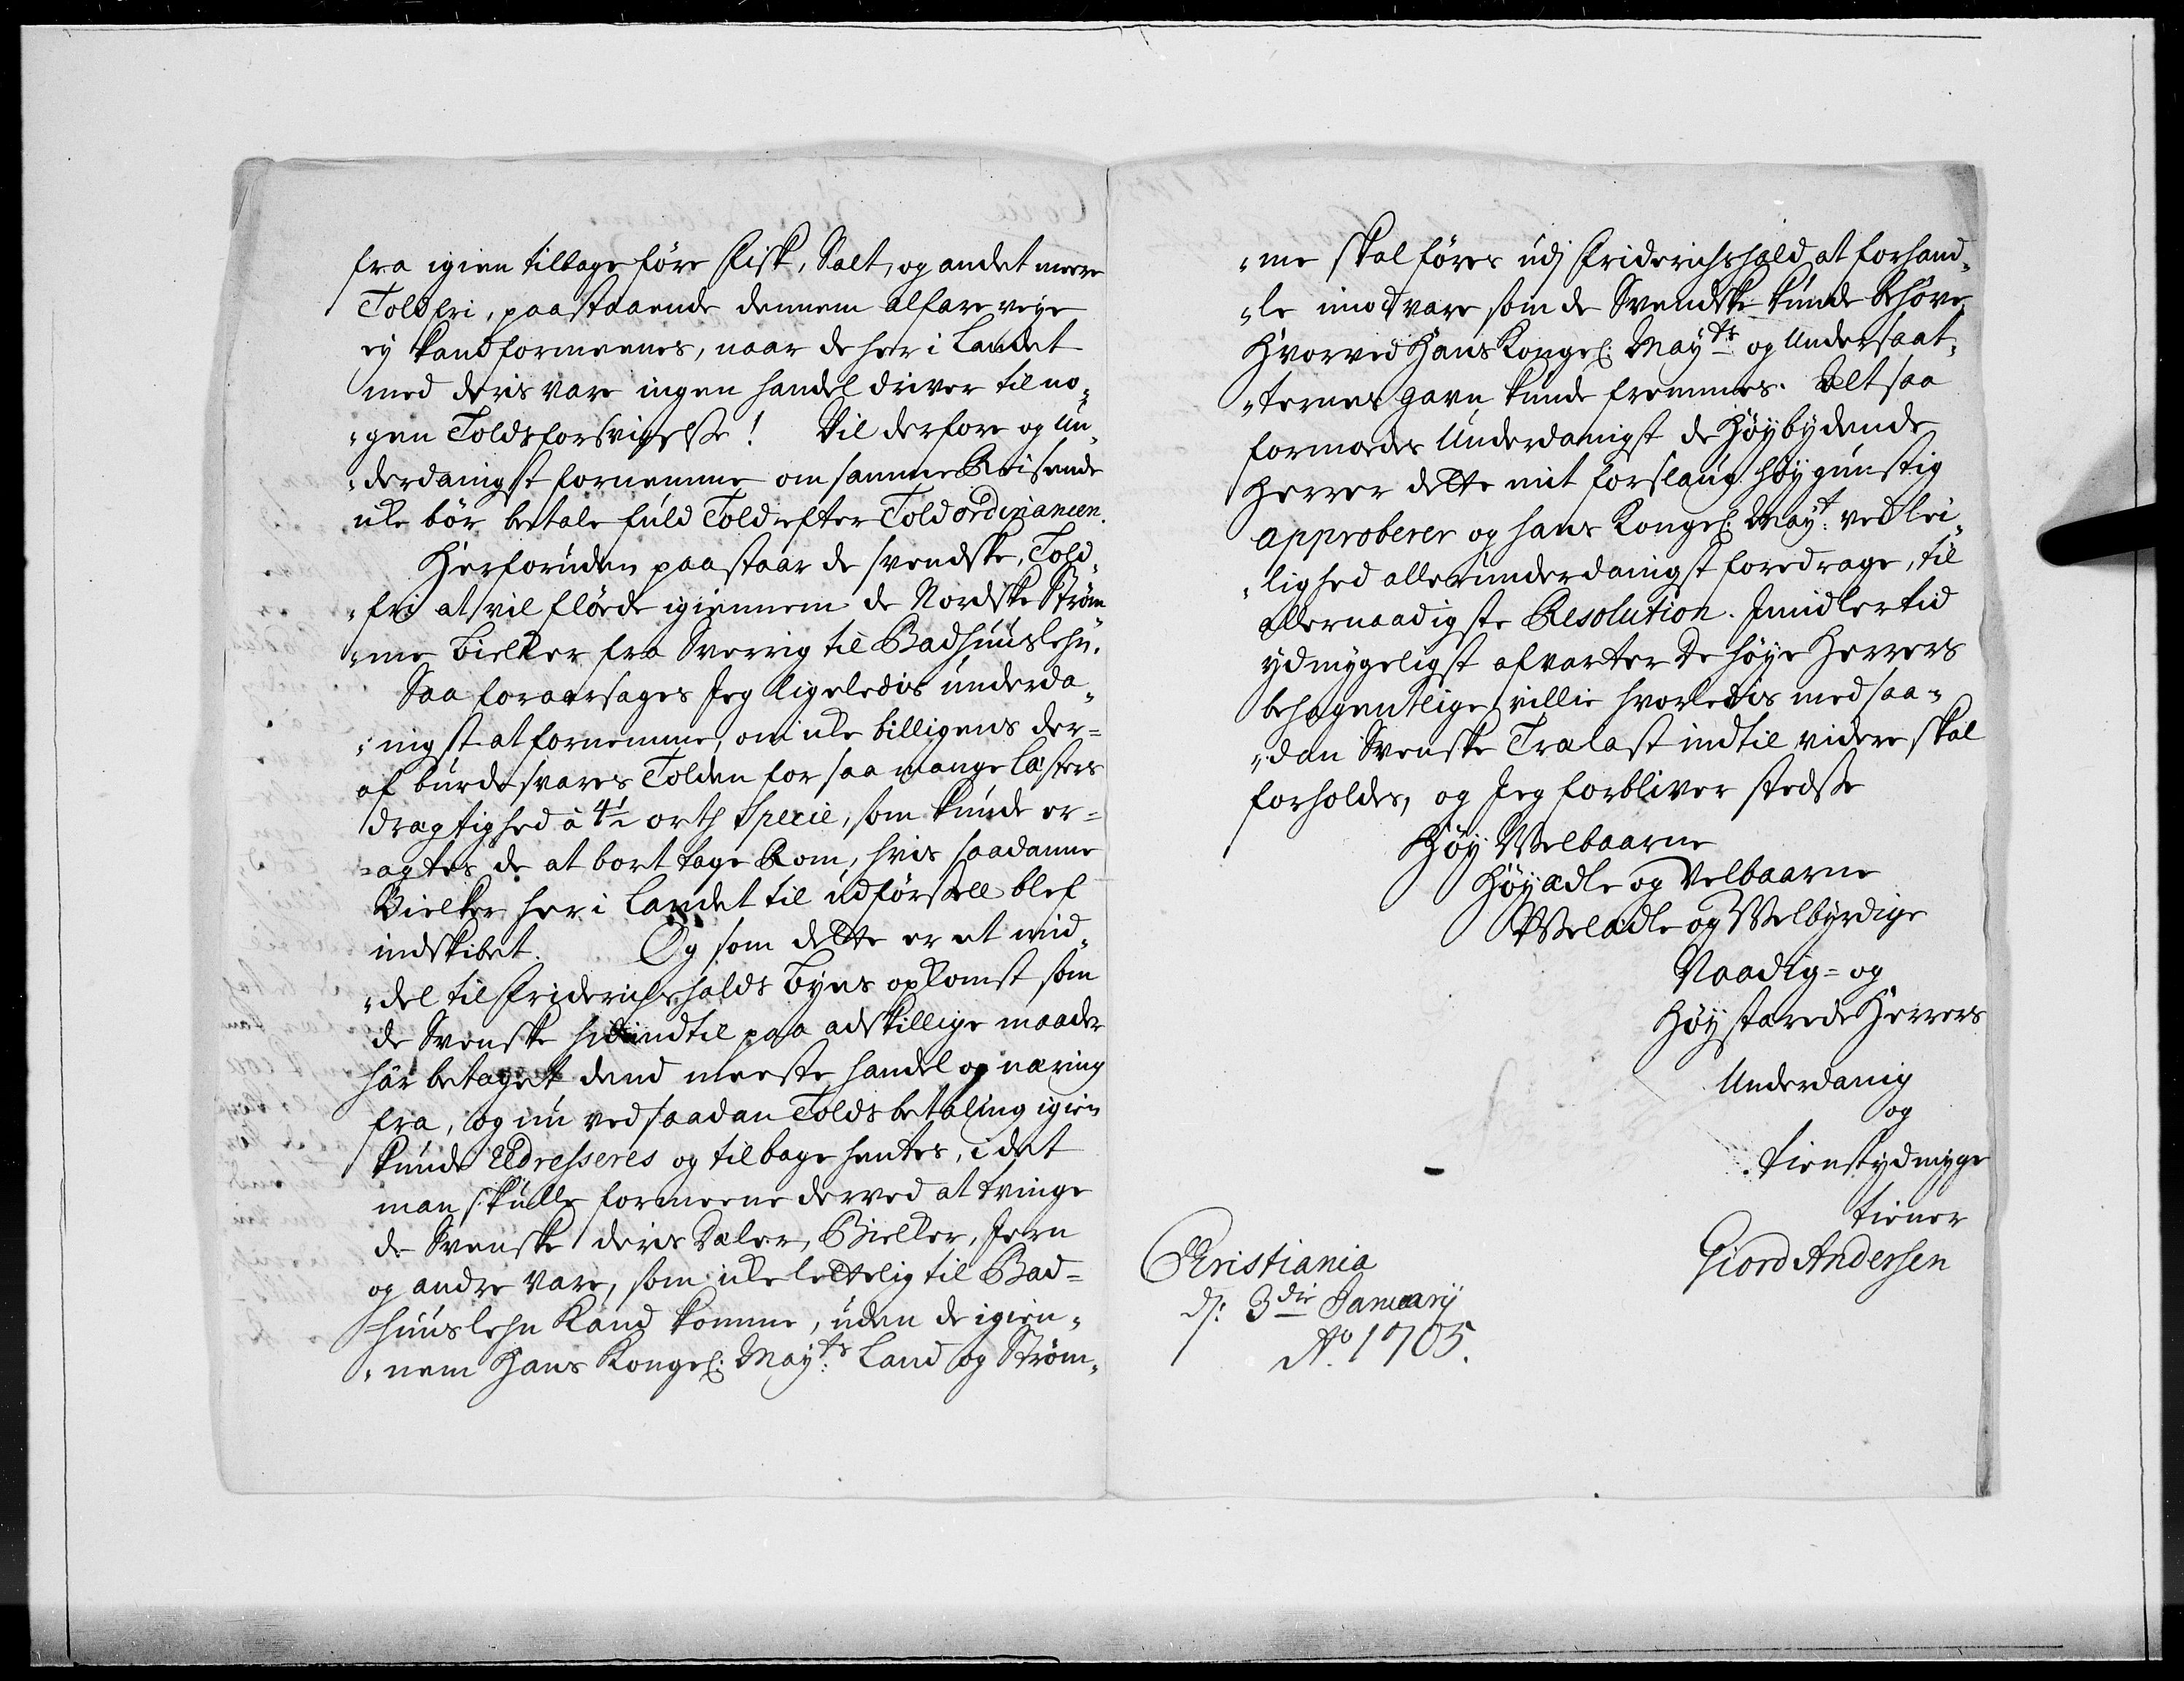 fra igien tilbage føre Fisk, Salt, og andet meere
Told fri, paastaaende dennem alfare veye
ey kand formeenes, naar de her i Landet
med deris vare ingen handel driver til no„
„gen Toldsforsvigelse! Vil derfore og un„
„derdanigst fornemme om samme Reisende
icke bör betale fuld Told efter Told ordinancen.
Herforuden paastaar de svendske, Told„
„fri at vil flöde igiennem de Nordske Ström
„me Bielker fra Sverrig til Badhuuslehn.
Saa foraarsages Jeg ligeledis underda„
„nigst at fornemme, om icke billigens der=
af burde svares Tolden for saa mange læsters
drægtighed à 4½ orth Specie, som kunde er=
=agtes de at bort tage Rom, hvis saadanne
Bielker her i Landet til udförsell blef
indskibet. Og som dette er et mid„
„del til Friderichshalds Byes opkomst som
de Svenske hidindtil paa adskillige maader
har betaget dend meeste handel og næring
fra, og nu ved saadan Tolds betaling igien
kunde Redresseres og tilbage hentes, i det
man skulle formeene derved at tvinge
de Svenske deris Dæler, Bielker, Jern
og andre vare, som icke lettelig til Bad=
=huuslehn Kand komme, uden de igien„
„nem Hans Kongel: Mayts: Land og Ström„
„me skal föres udj Friderichshald at forhand„
„le imod vare som de Svendske kunde behöve
Hvorved Hans Kongel: Mayts og Undersaat„
„ternes gavn kunde fremmes. Alt saa
formodes Underdanigst de Höybydende
Herrer dette mit forslaug höygunstig
approberer og hans Kongel: Mayt: ved lei„
„lighed allerunderdanigst foredrage, til
allernaadigste Resolution. Imidlertid
ydmygeligst afvarter De höye Herrers
behagentlige villie hvorledis med saa„
„dan Svenske Tralast indtil videre skal
forholdes, og Jeg forbliver stedse
Höy Welbaarne
Höyædle og Velbaarne
Welædle og Welbyrdige
Naadig= og
Höystærede Herrers
Underdanig
og
tienstydmyge
tiener
Giord Andersen
Christiania
d: 3die January
Ao 1705.